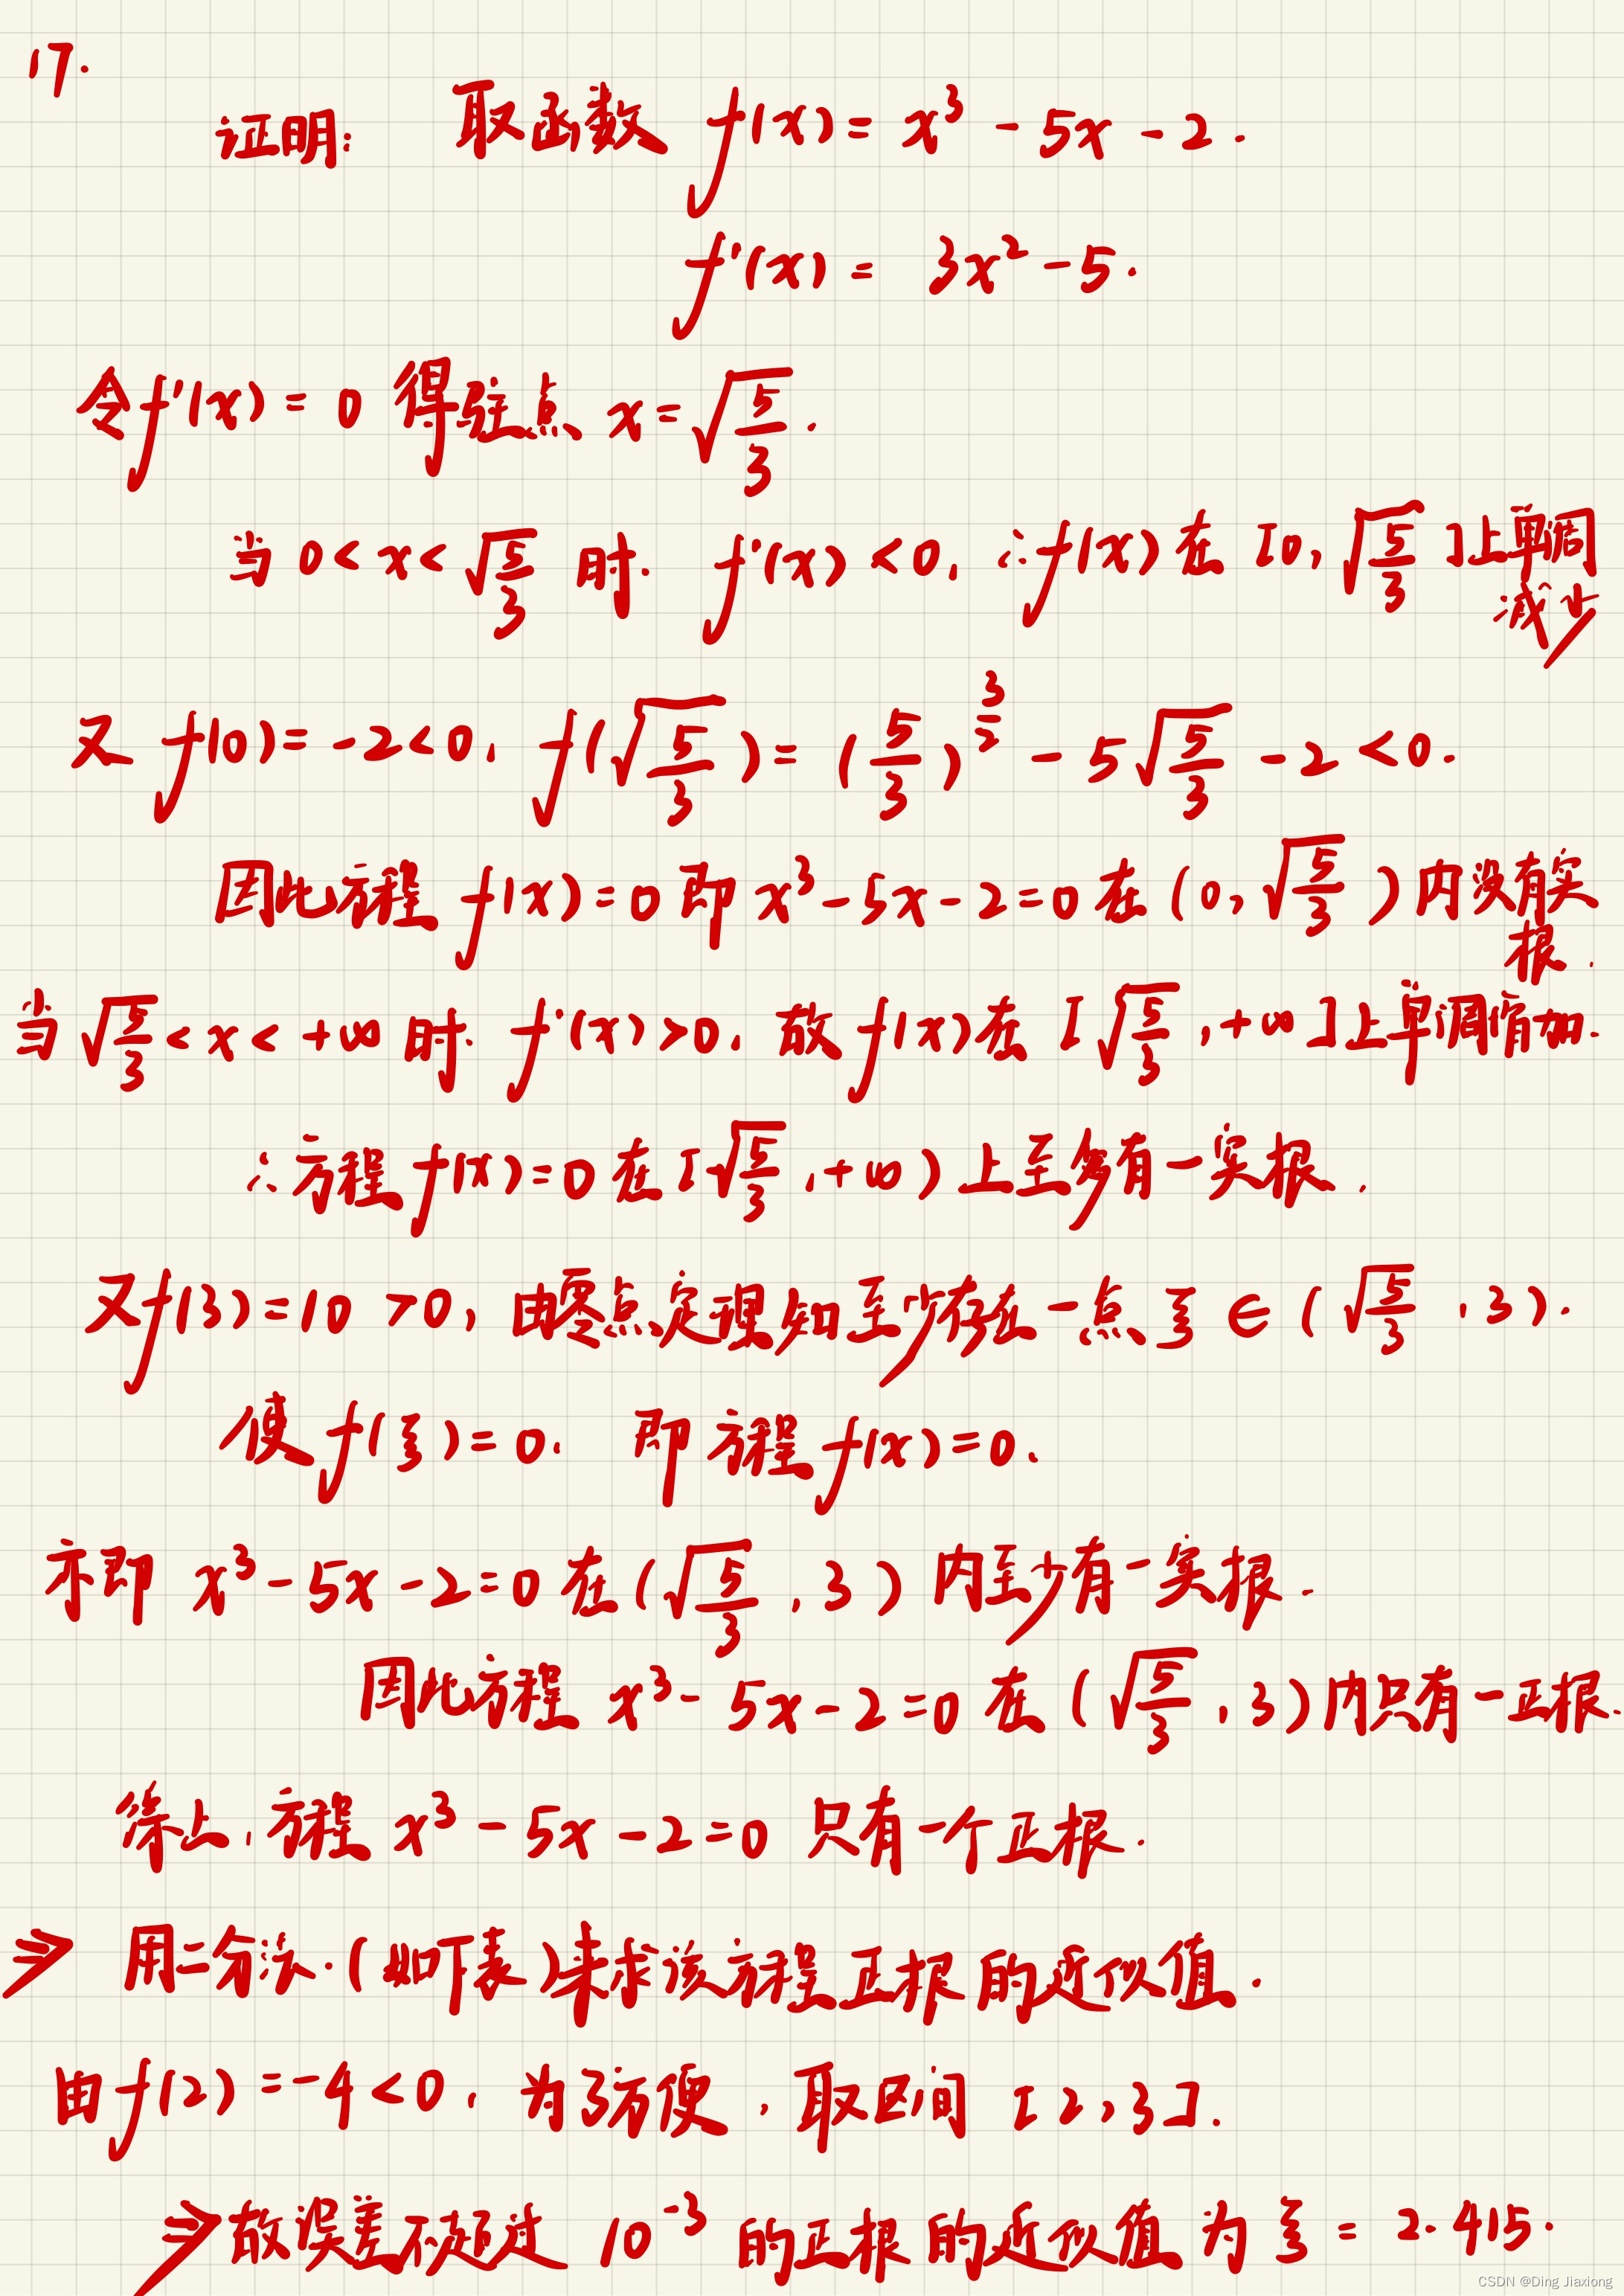 17.
证明: 取函数 f(x) = x³ - 5x - 2.
f'(x) = 3x² - 5.
令f'(x) = 0 得驻点 x = √(5/3).
当 0 < x < √(5/3) 时. f'(x) < 0, ∴f(x) 在 [0, √(5/3)]上单调
减少
又 f(0) = -2 < 0, f(√(5/3)) = (5/3)^(3/2) - 5√(5/3) - 2 < 0.
因此方程 f(x) = 0 即 x³ - 5x - 2 = 0 在 (0, √(5/3)) 内没有实
根.
当 √(5/3) < x < +∞ 时. f'(x) > 0, 故 f(x) 在 [√(5/3), +∞]上单调增加.
∴方程 f(x) = 0 在 [√(5/3), +∞) 上至多有一实根.
又f(3) = 10 > 0, 由零点定理知至少存在一点 ξ ∈ (√(5/3), 3).
使 f(ξ) = 0. 即 方程 f(x) = 0.
亦即 x³ - 5x - 2 = 0 在 (√(5/3), 3) 内至少有一实根.
因此方程 x³ - 5x - 2 = 0 在 (√(5/3), 3) 内只有一正根.
综上, 方程 x³ - 5x - 2 = 0 只有一个正根.
⇒ 用二分法.(如下表)来求该方程正根的近似值.
由 f(2) = -4 < 0, 为了方便, 取区间 [2,3].
⇒ 故误差不超过 10⁻³ 的正根的近似值为 ξ = 2.415.
CSDN @Ding Jiaxiong